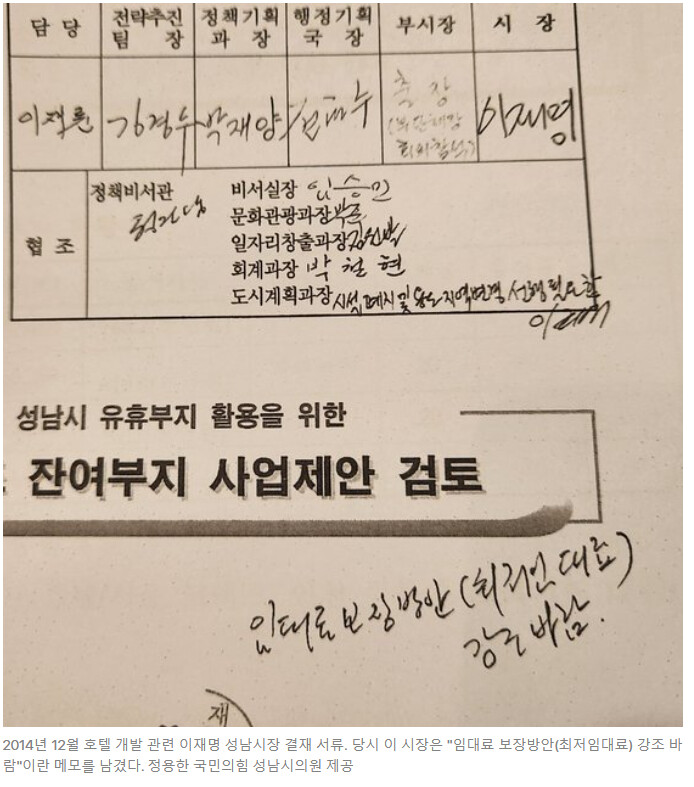 담당 전략추진팀장 정책기획과장 행정기획국장 부시장 시장
이재륜 김경수 박재양 출장 이재명
협조
정책비서관
비서실장 임승민
문화관광과장
일자리창출과장
회계과장 박철현
도시계획과장 시설폐지 및 용도지역변경 선행 필요함
성남시 유휴부지 활용을 위한
잔여부지 사업제안 검토
임대료 보장방안(최저임대료)
강조 바람.
재
2014년 12월 호텔 개발 관련 이재명 성남시장 결재 서류. 당시 이 시장은 "임대료 보장방안(최저임대료) 강조 바
람"이란 메모를 남겼다. 정용한 국민의힘 성남시의원 제공